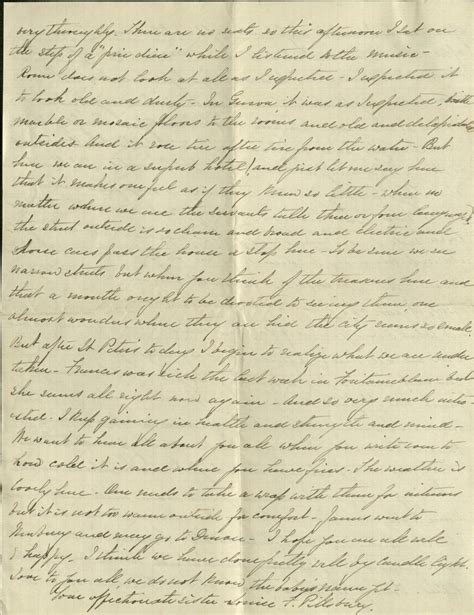 very thoroughly. There are no seats so this afternoon I sat on
the step of a "prie dieu" while I listened to the music -
Rome does not look at all as I expected - I expected it
to look old and dusty - In Genoa it was as I expected, with
marble or mosaic floors to the rooms and old and delapidated
outsides and it rose tier after tier from the water - But
here we are in a superb hotel! and just let me say here
that it makes one feel as if they knew so little - when no
matter where we are the servants talk three or four languages!
the street outside is so clean and broad and electric and
horse cars pass the house & stop here - To be sure we see
narrow streets but when you think of the treasures here and
that a month ought to be devoted to seeing them one
almost wonders where they are hid the city seems so small.
But after St Peters to day I begin to realize what we are under
taken - Frances was sick the last week in Fontainebleau but
she seems all right now again - And so very much inter
ested - I keep gaining in health and strength and mind -
We want to hear all about you all when you write come to
how cold it is and where you have fires - The weather is
lovely here - One needs to take a wrap with them for
but it is not too warm outside for comfort - James went to
and may go to - I hope you are all well
& happy I think we have done pretty well by candle light.
Love to you all, we do not know the babies name yet -
Your affectionate sister Louise F. Pillsbury